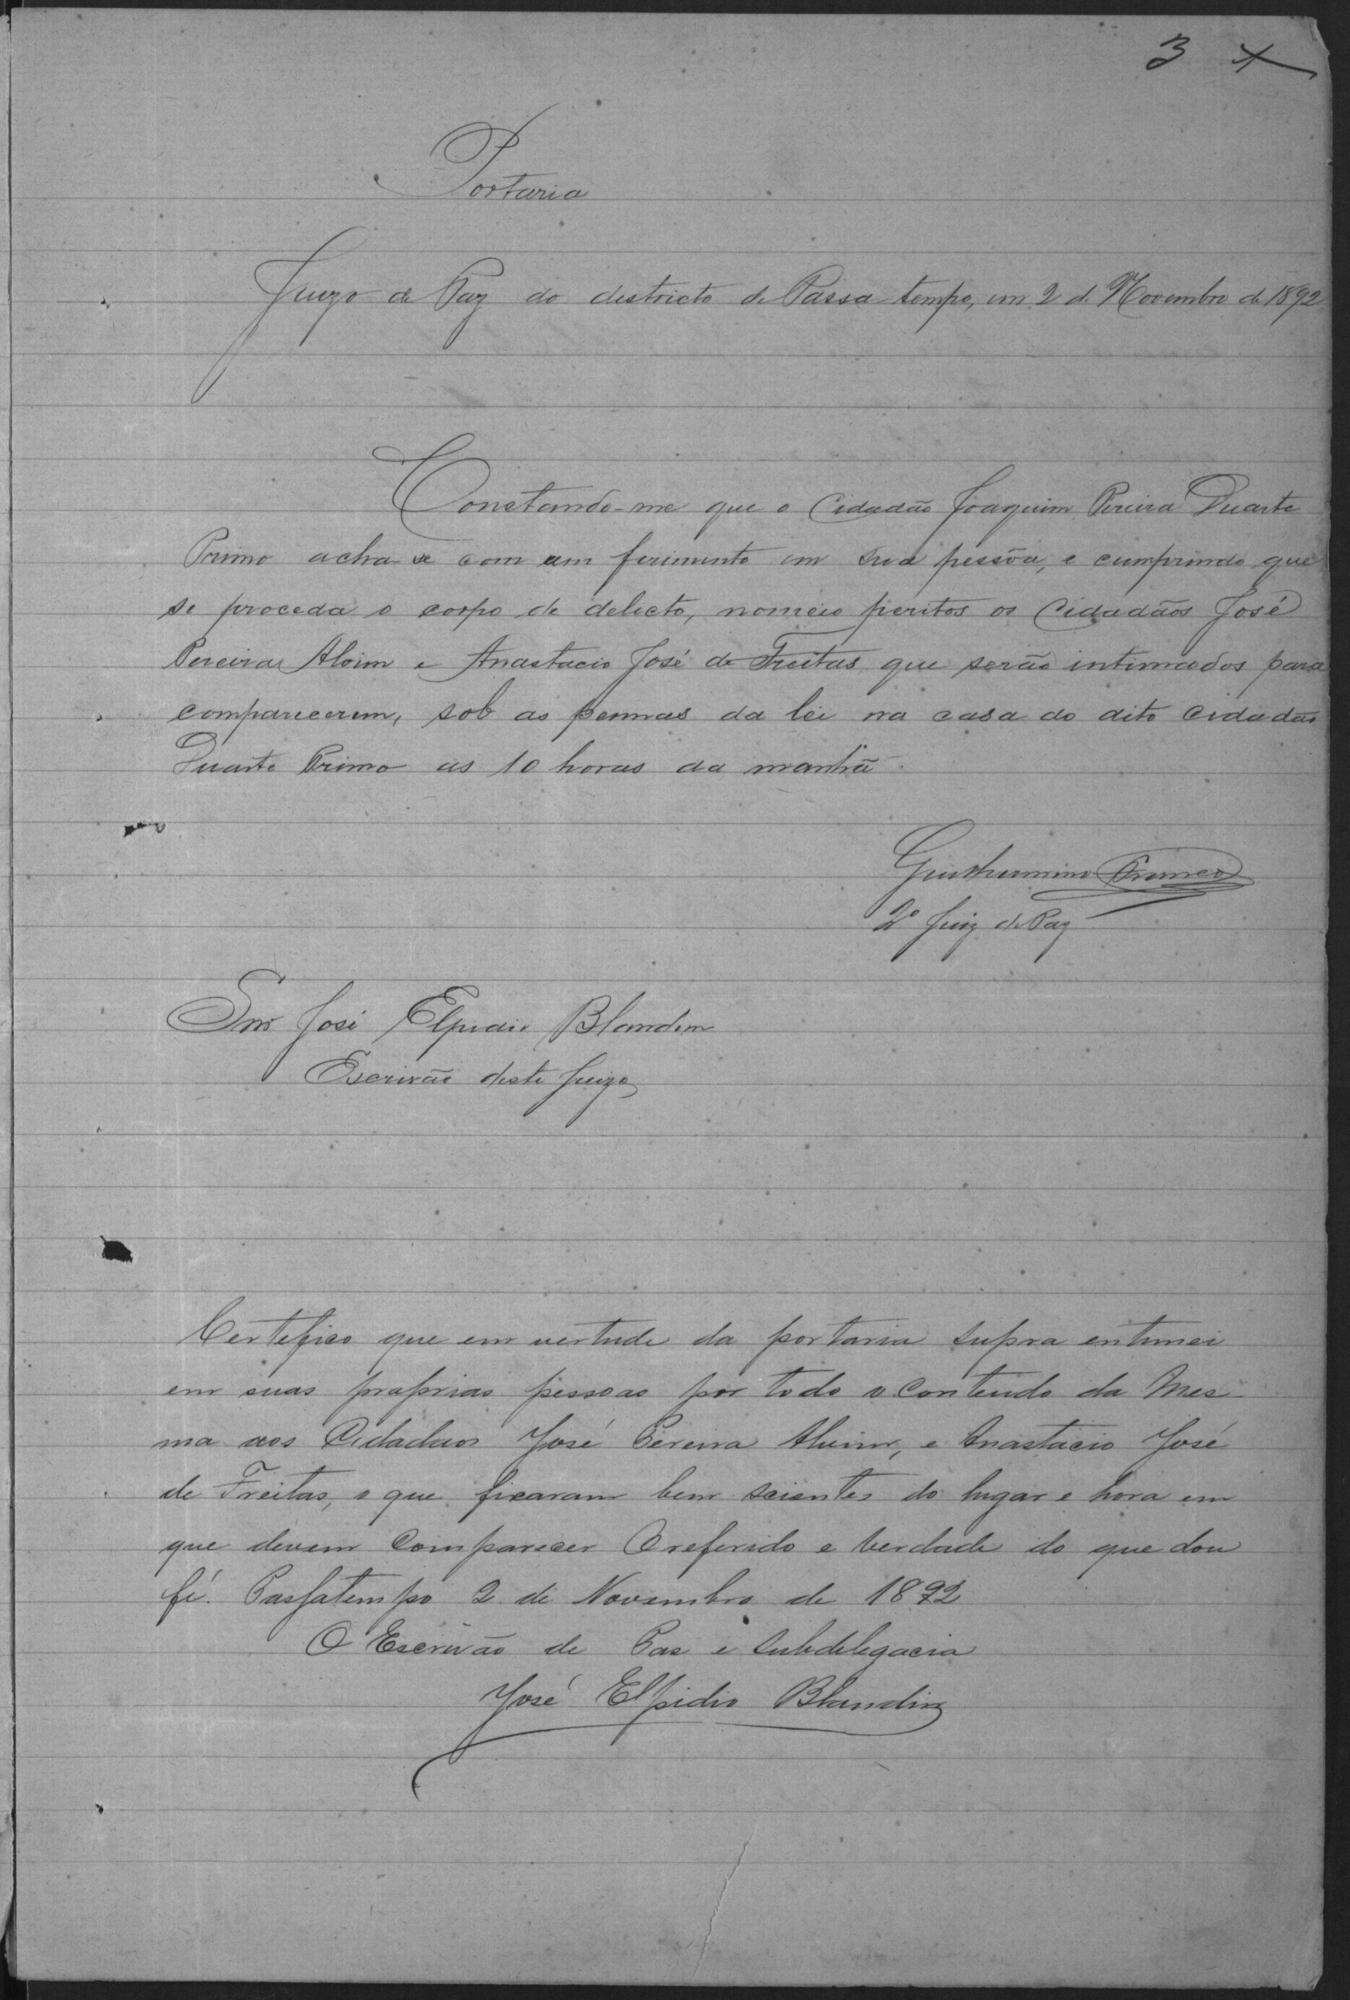 3
Portaria
Juizo de Paz do districto de Passa tempo, em 2 de Novembro de 1892
Constando-me que o Cidadão Joaquim Pereira Duarte
Primo acha-se com um ferimento em sua pessôa, e cumprindo que
se proceda o corpo de delicto, nomeio peritos os Cidadãos José
Pereira Alvim e Anastacio José de Freitas que serão intimados para
comparecerem, sob as pennas da lei na casa do dito cidadão
Duarte Primo as 10 horas da manhã.
Guilhermino Franco
2º Juiz de Paz
Snr José Elpidio Blandim
Escrivão deste Juizo
Certefico que em vertude da portaria supra entimei
em suas proprias pessoas por todo o conteudo da mes-
ma aos Cidadaos José Pereira Alvim, e Anastacio José
de Freitas, o que ficaram bem scientes do lugar e hora em
que devem comparecer O referido e verdade do que dou
fé. Passatempo 2 de Novembro de 1892
O Escrivão de Pas e subdelegacia
José Elpidio Blandim